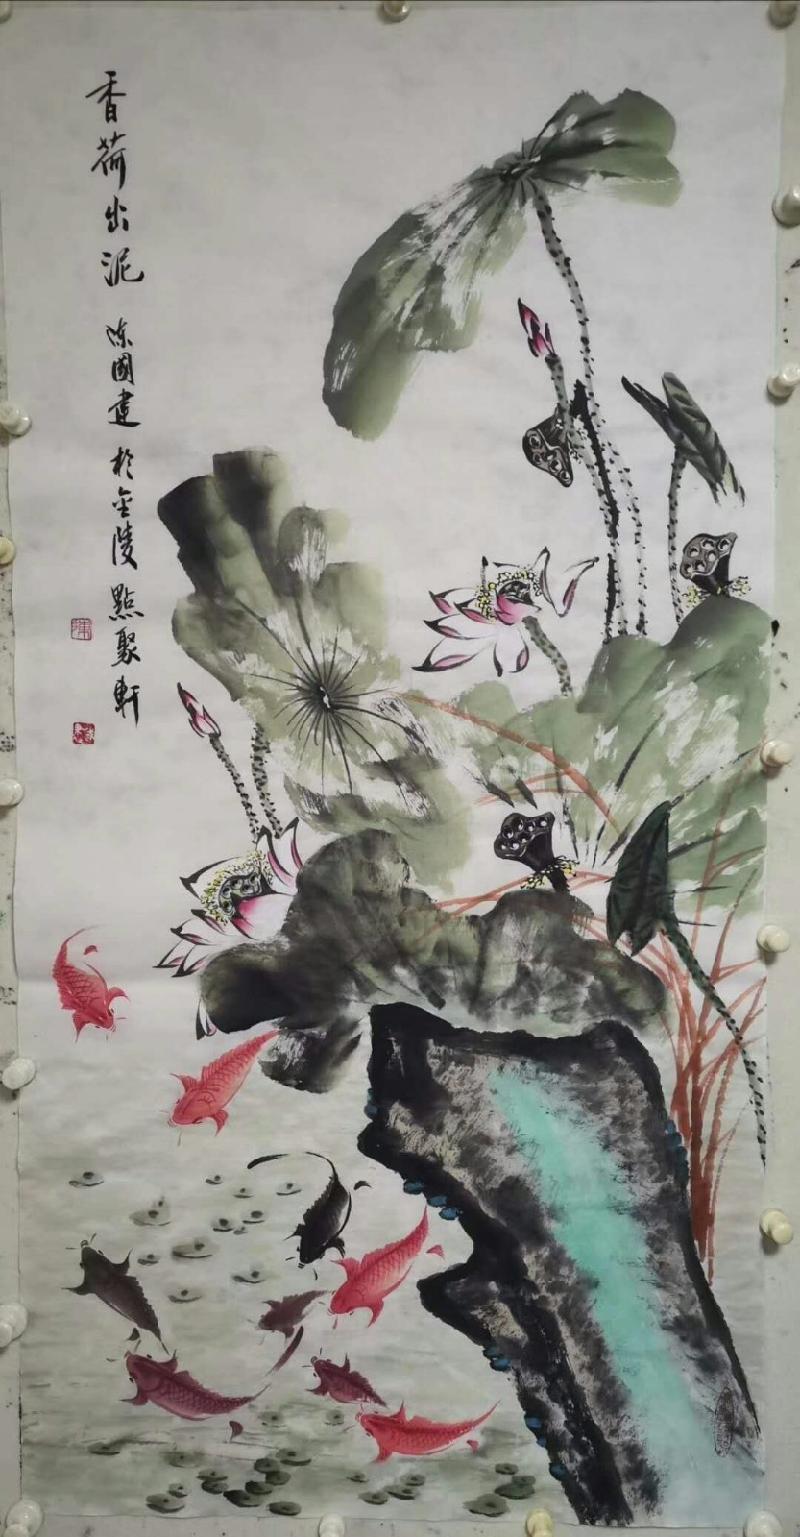 香荷出泥 陈國建於金陵點聚軒